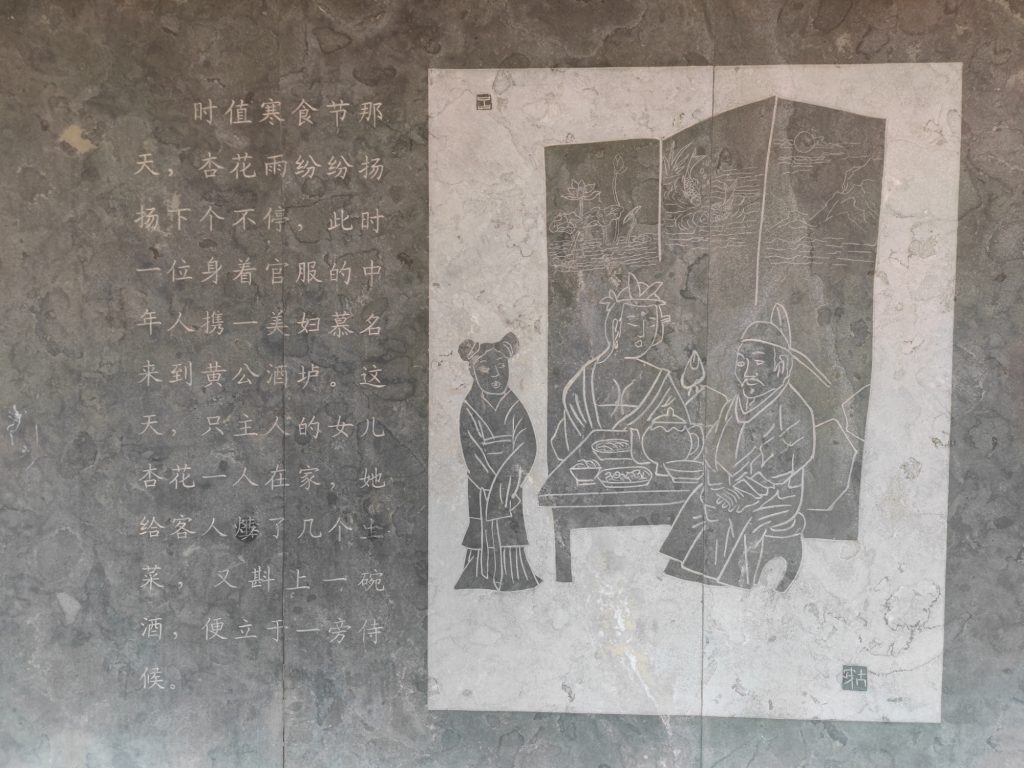 时值寒食节那
天，杏花雨纷纷扬
扬下个不停，此时
一位身着官服的中
年人携一美妇慕名
来到黄公酒垆。这
天，只主人的女儿
杏花一人在家，她
给客人烧了几个土
菜，又斟上一碗
酒，便立于一旁侍
候。